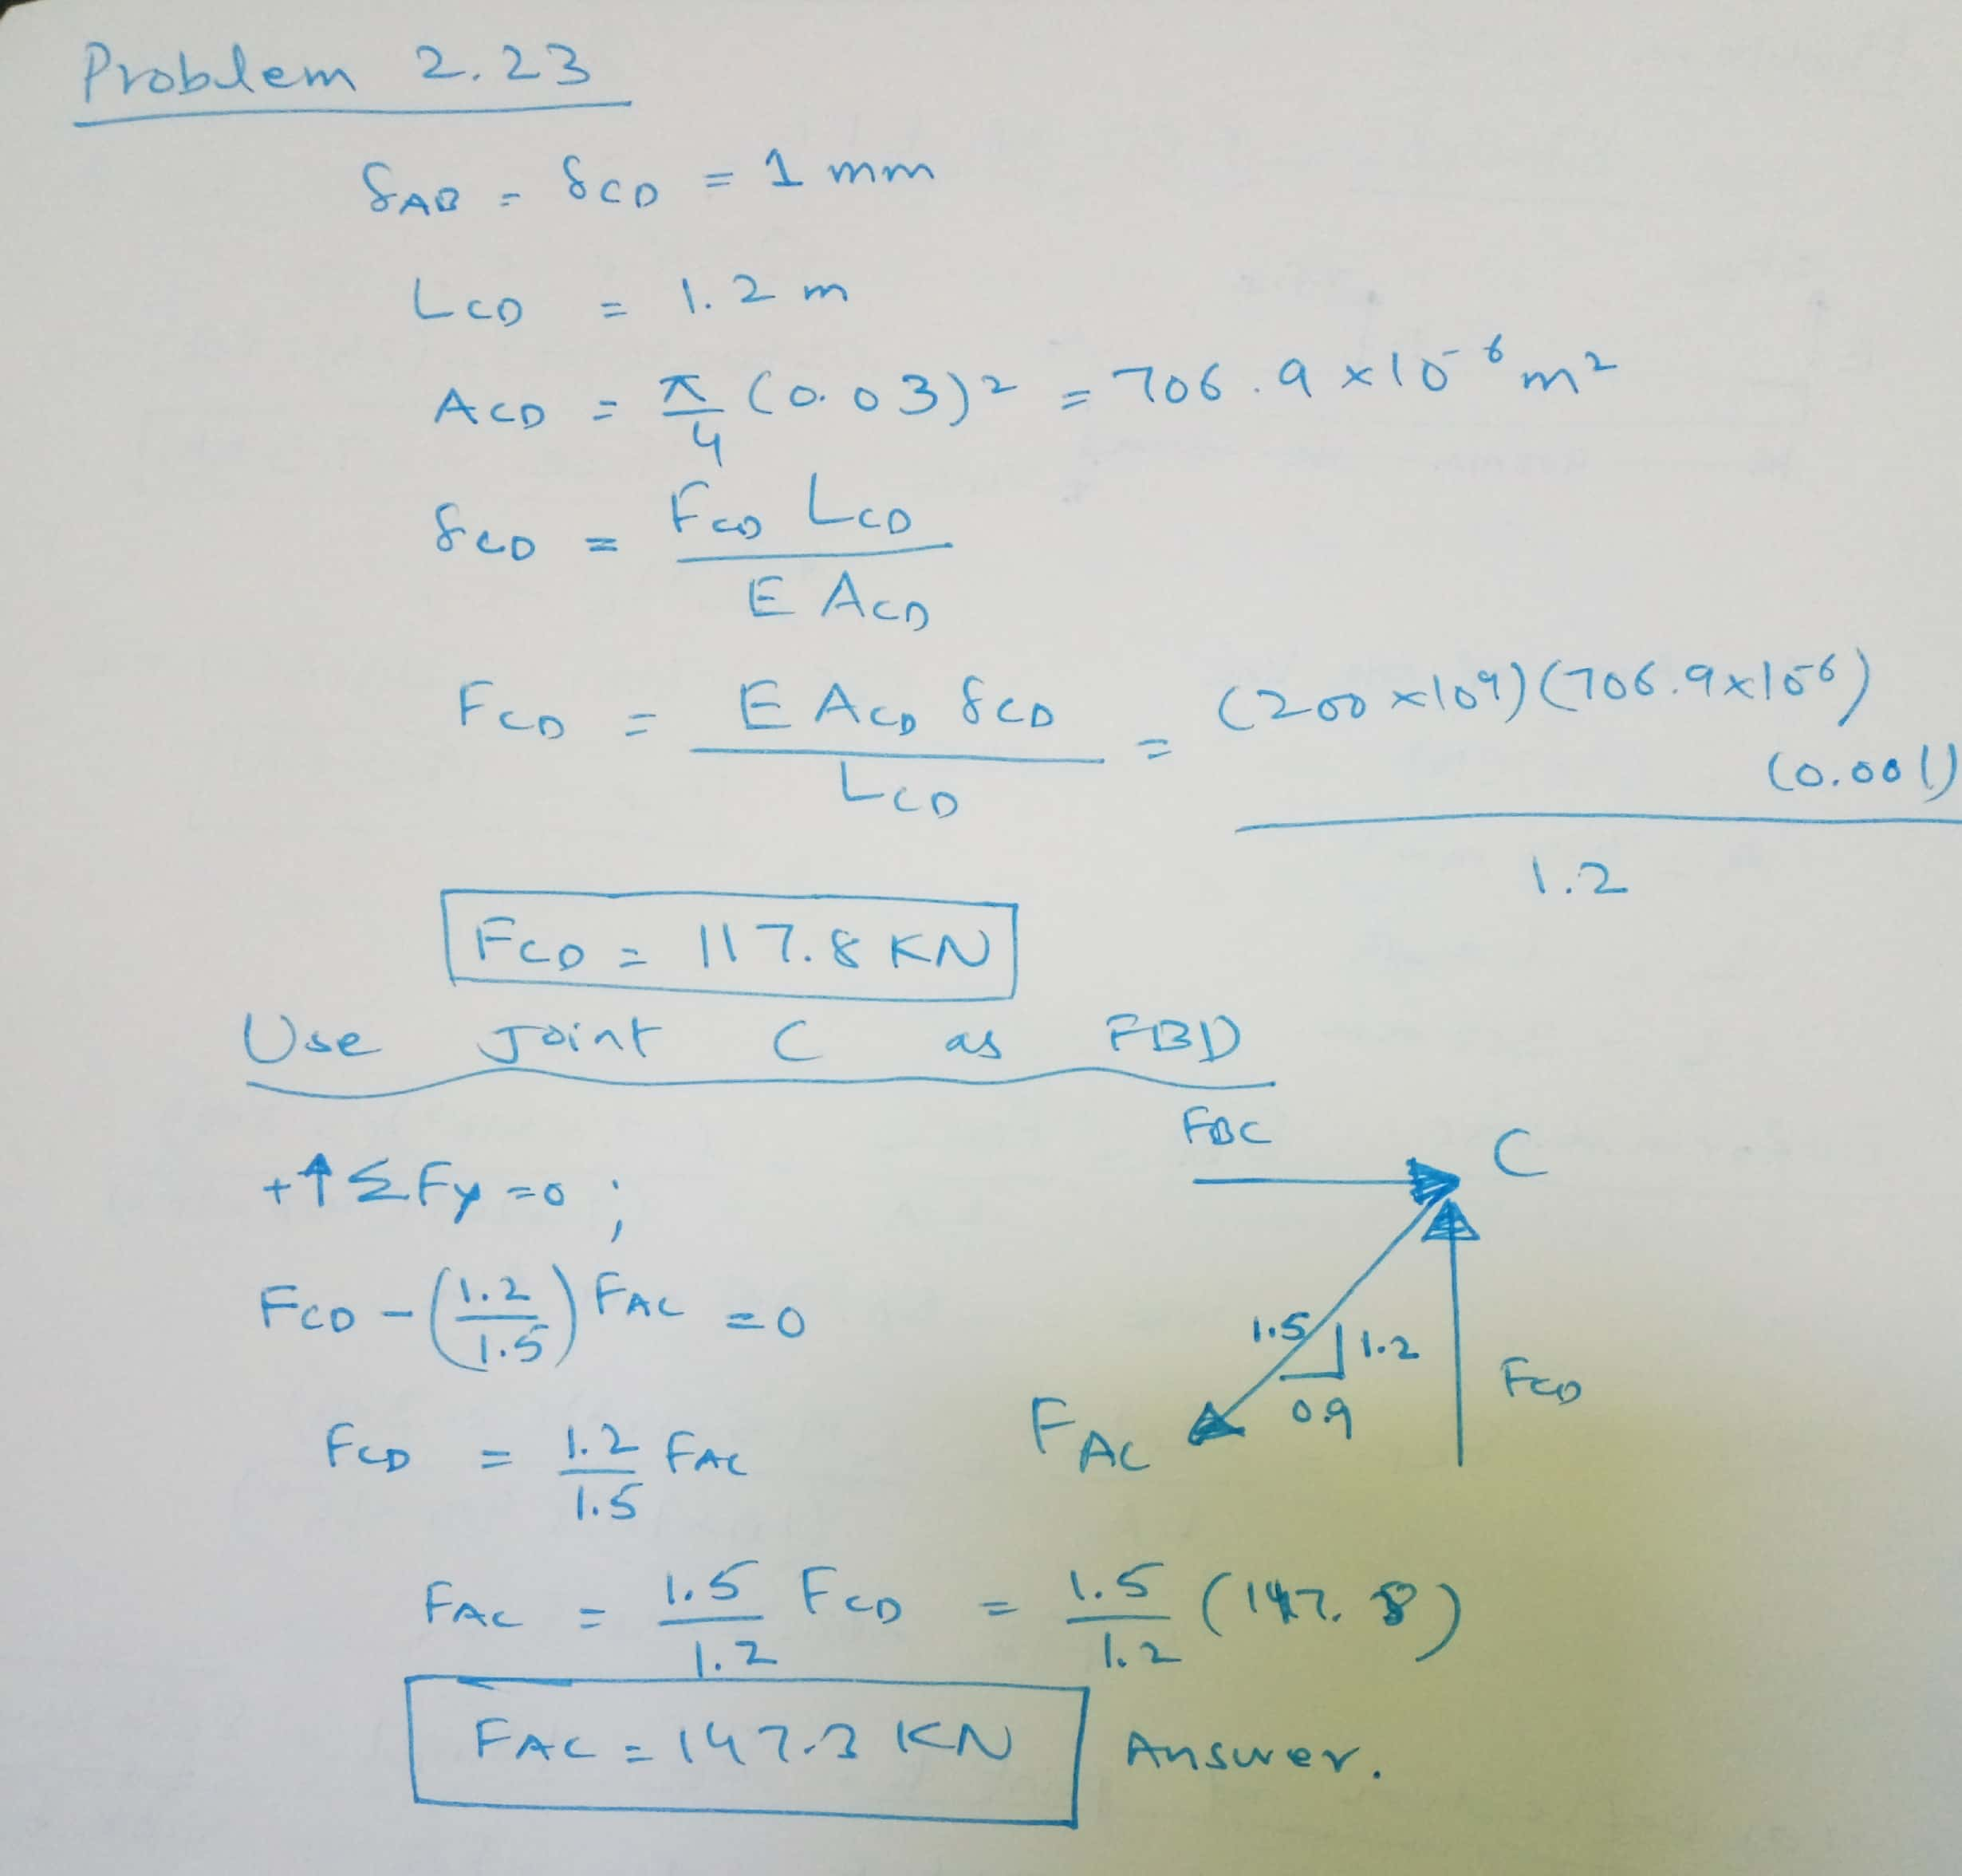 Problem 2.23
δAB = δCD = 1 mm
LCD = 1.2 m
ACD = π/4 (0.03)² = 706.9 x10⁻⁶ m²
δCD = FCD LCD / E ACD
FCD = E ACD δCD / LCD = (200 x10⁹)(706.9x10⁻⁶)(0.001) / 1.2
FCD = 117.8 KN
Use Joint C as FBD
FBC
C
+↑ΣFy=0 ;
FCD - (1.2/1.5) FAC = 0
1.5 1.2
FCD
0.9
FAC
FCD = 1.2/1.5 FAC
FAC = 1.5/1.2 FCD = 1.5/1.2 (117.8)
FAC = 147.3 KN Answer.